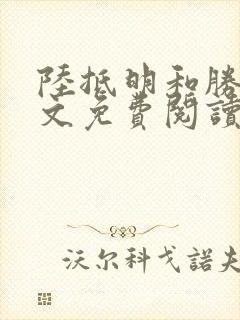 陸抵明和勝
文免費閱讀
沃尔科戈諾夫